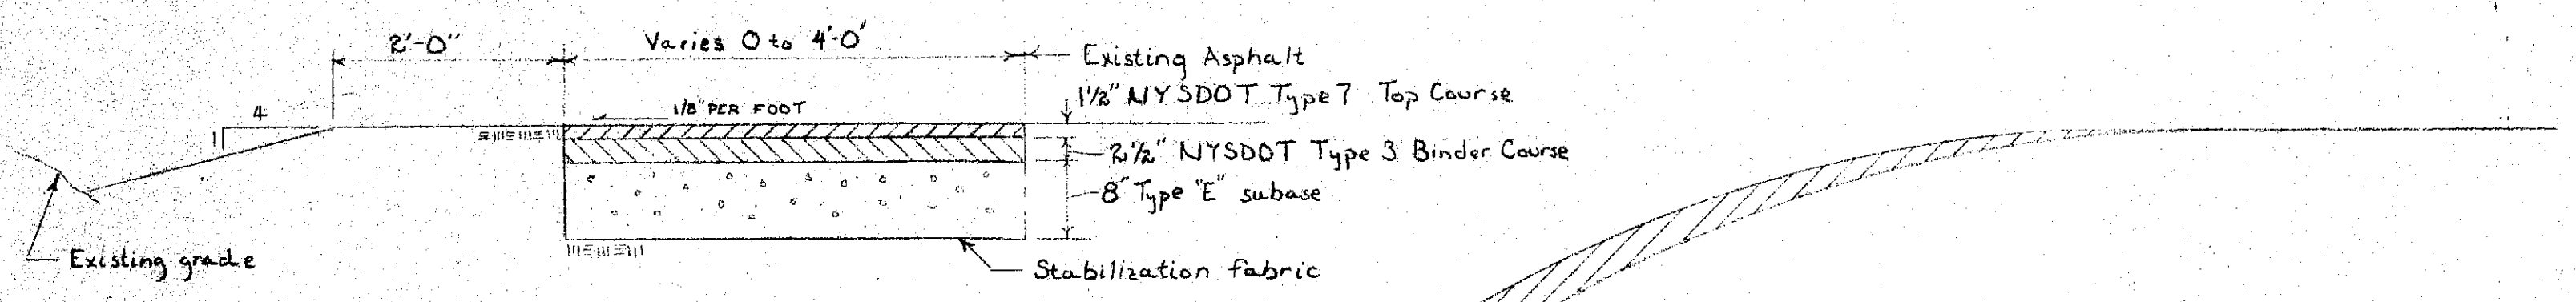 2'-0"
Varies 0 to 4'-0'
Existing Asphalt
1½" NYSDOT Type 7 Top Course
4
1/8" PER FOOT
1
2½" NYSDOT Type 3 Binder Course
8" Type "E" subase
Existing grade
Stabilization fabric